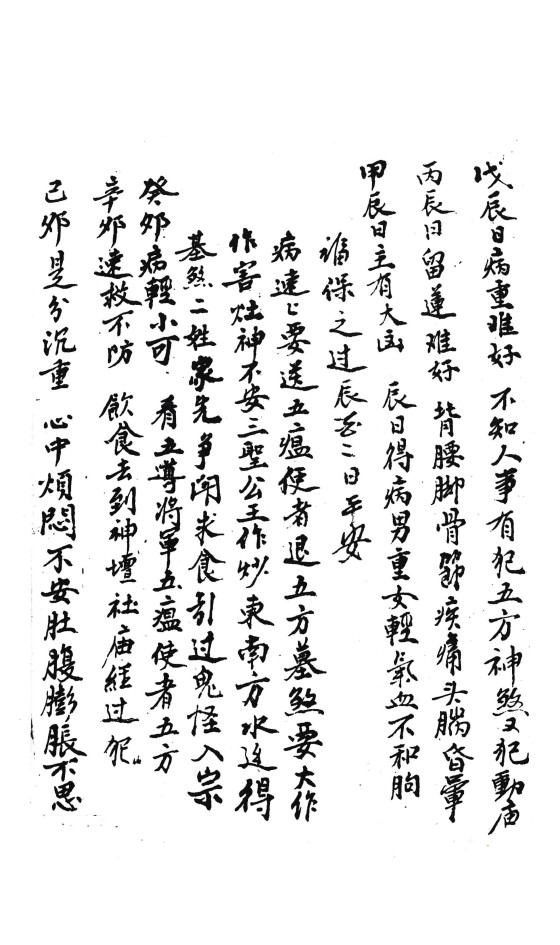 戊辰日病重难好 不知人事有犯五方神煞又犯動庙
丙辰日留蓮难好 背腰脚骨節疾痛头腦昏暈
甲辰日主有大凶 辰日得病男重女輕氣血不和胸
保之过辰 二日平安
病速〻要送五瘟使者退五方墓煞要大作
作害灶神不安三聖公王作炒東南方水边得
基煞二姓家先争闹求食引过鬼怪入宗
癸卯病輕小可 看五遵將軍五瘟使者五方
辛卯速救不防 飲食去到神壇社庙经过犯
己卯是分沉重 心中煩悶不安肚腹膨脹不思